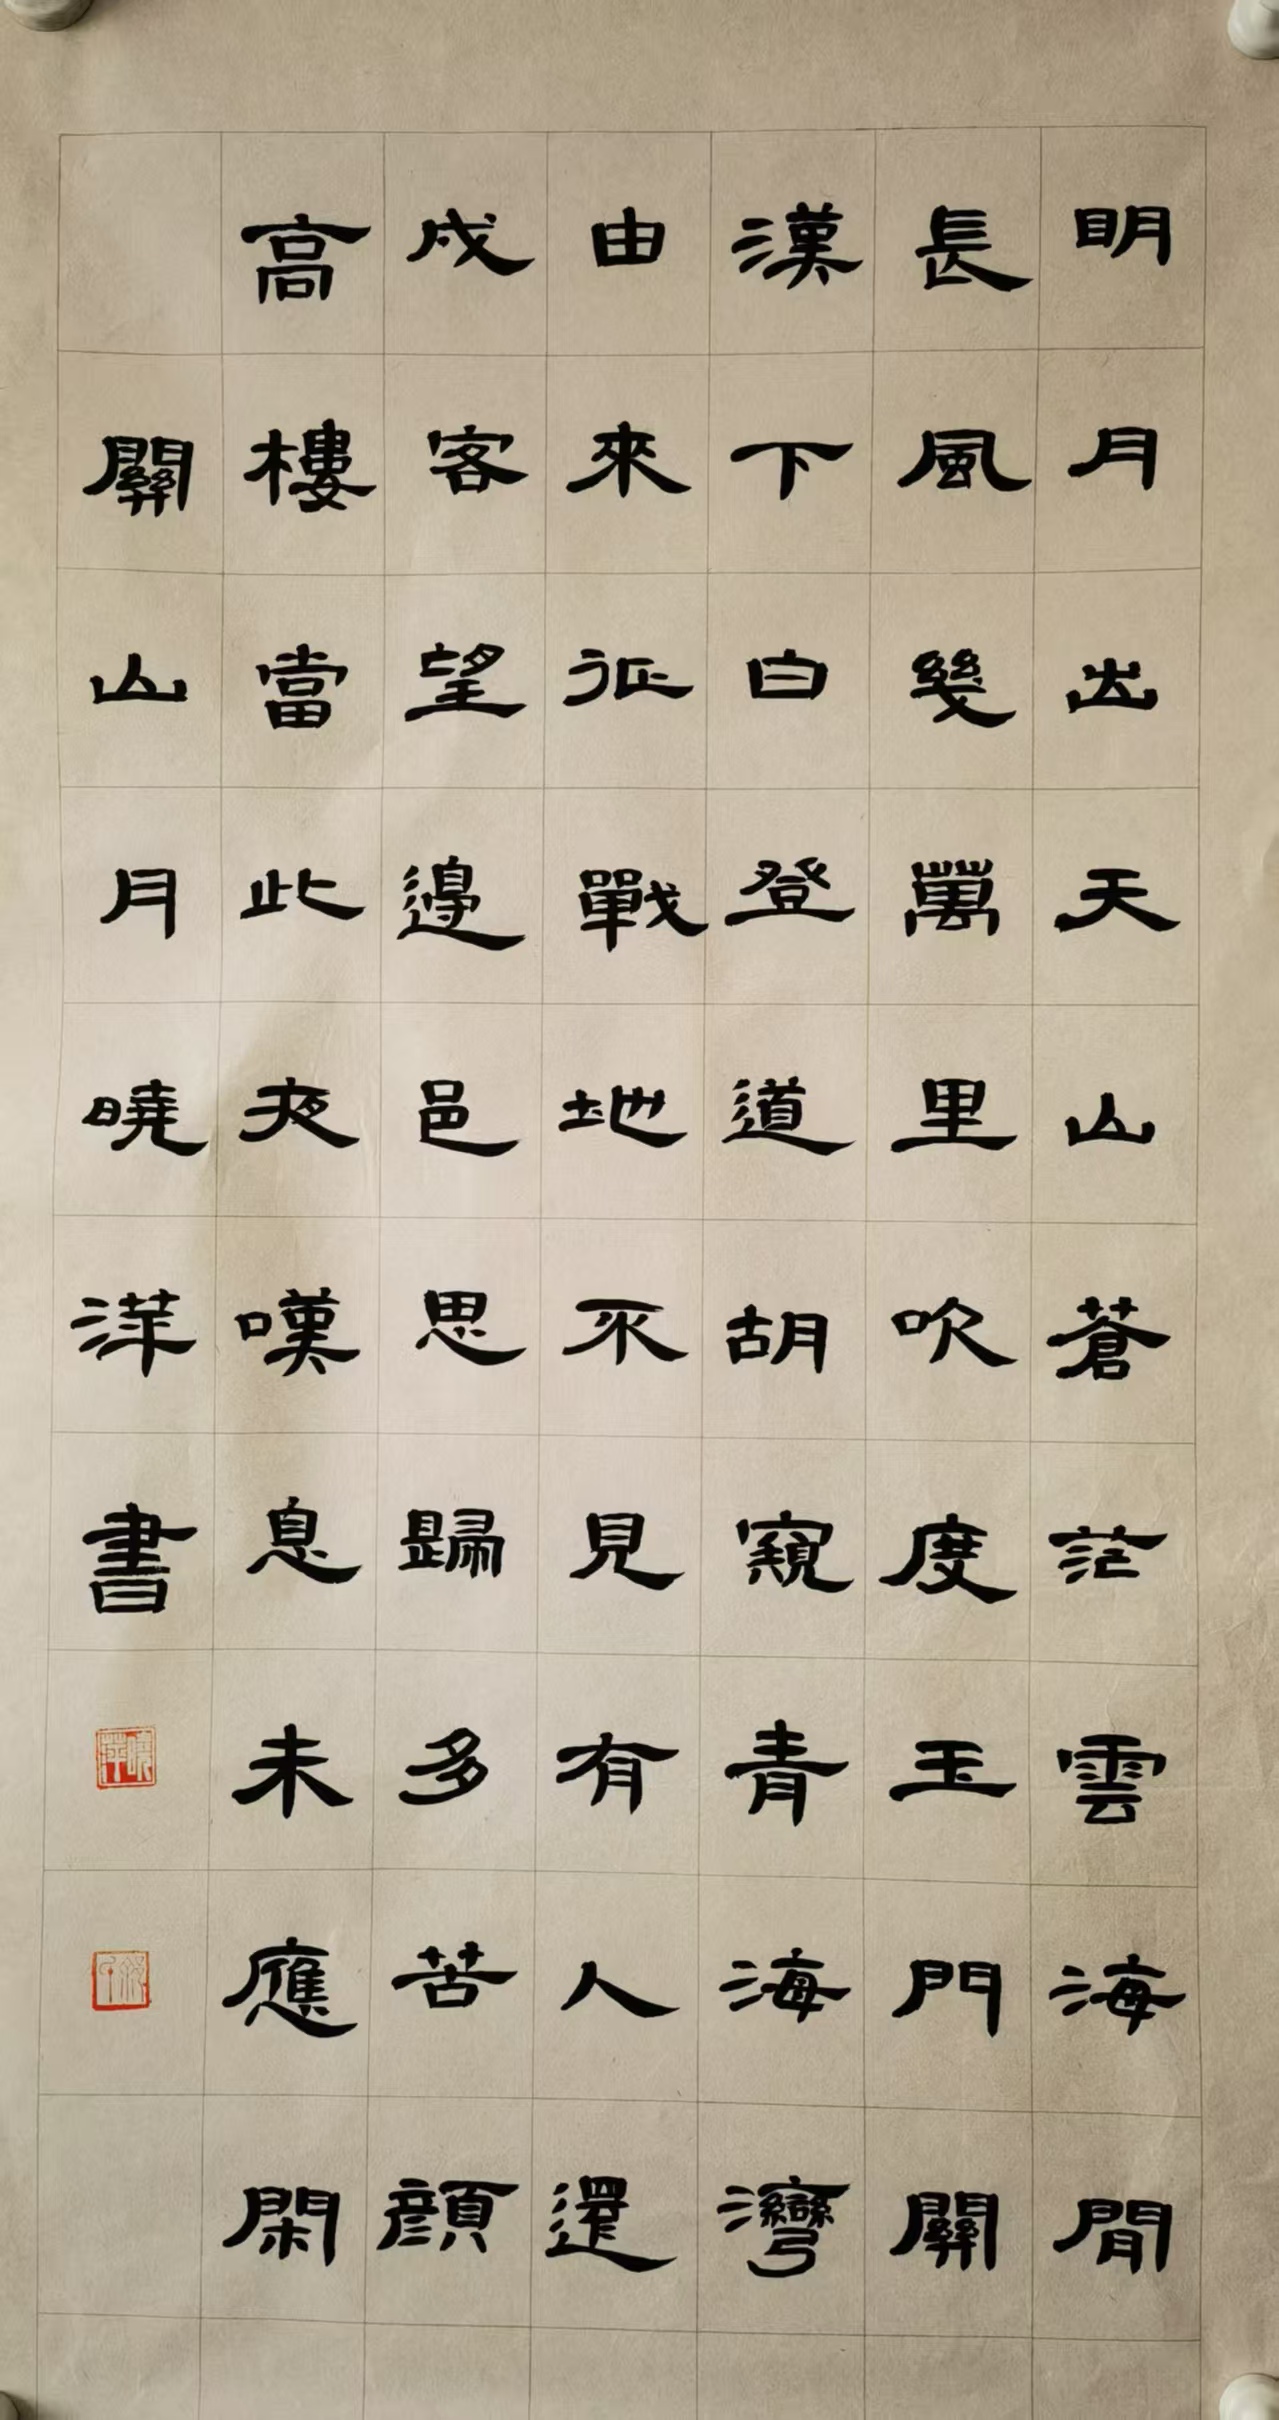 明月出天山蒼茫雲海閒
長風幾萬里吹度玉門關
漢下白登道胡窺青海灣
由來征戰地不見有人還
戍客望邊邑思歸多苦顏
高樓當此夜嘆息未應閑
關山月曉洋書